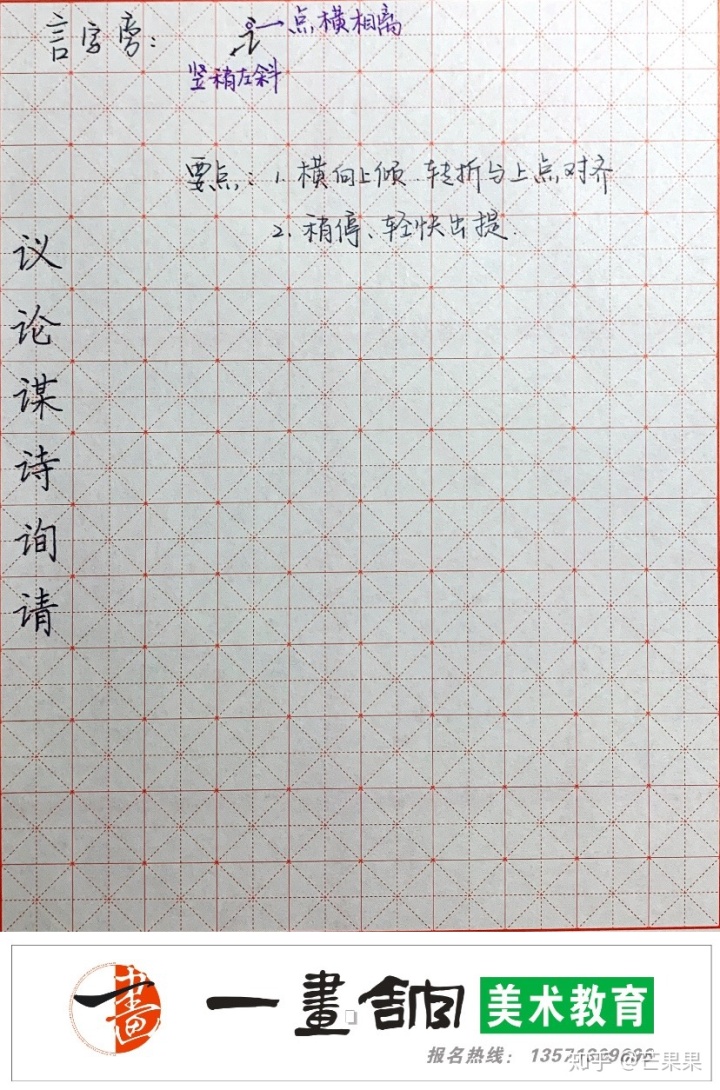 言字旁： 讠 点横相离
竖稍左斜
要点：1. 横向上倾 转折与上点对齐
2. 稍停、轻快出提.
议
论
谋
诗
询
请
一畫 一畫舍内 美术教育
报名热线：
知乎 @芒果果